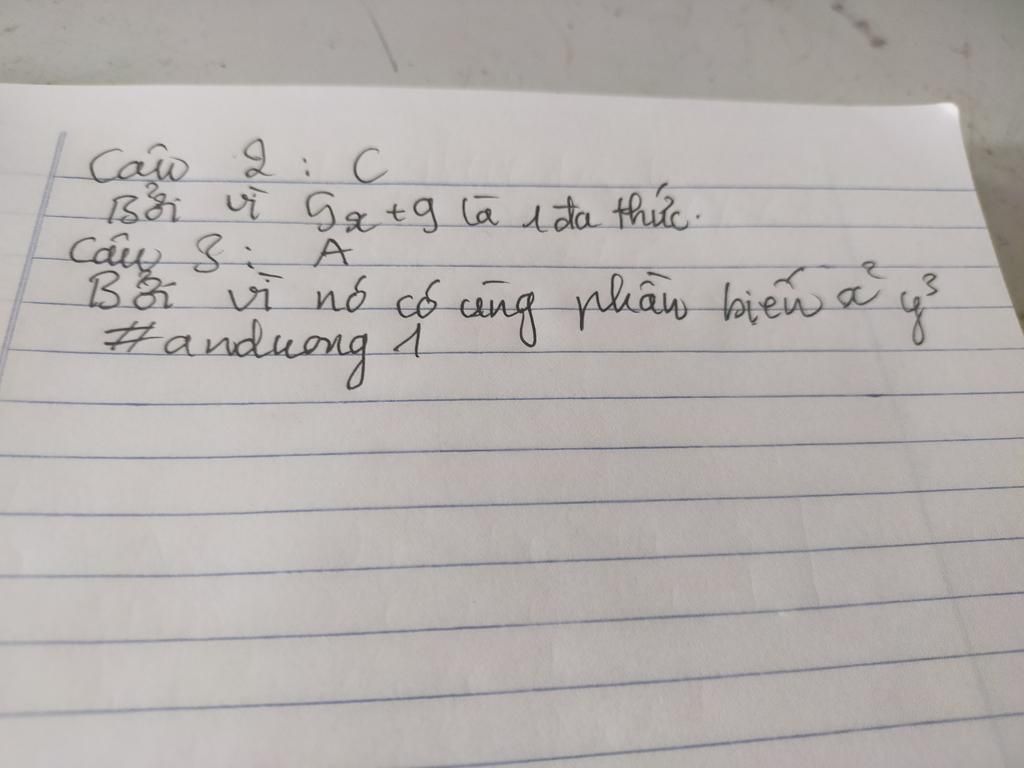 Câu 2 : C
Bởi vì 5x + 9 là 1 đa thức.
Câu 3 : A
Bởi vì nó có cùng phần biến x² y³
#anduong 1